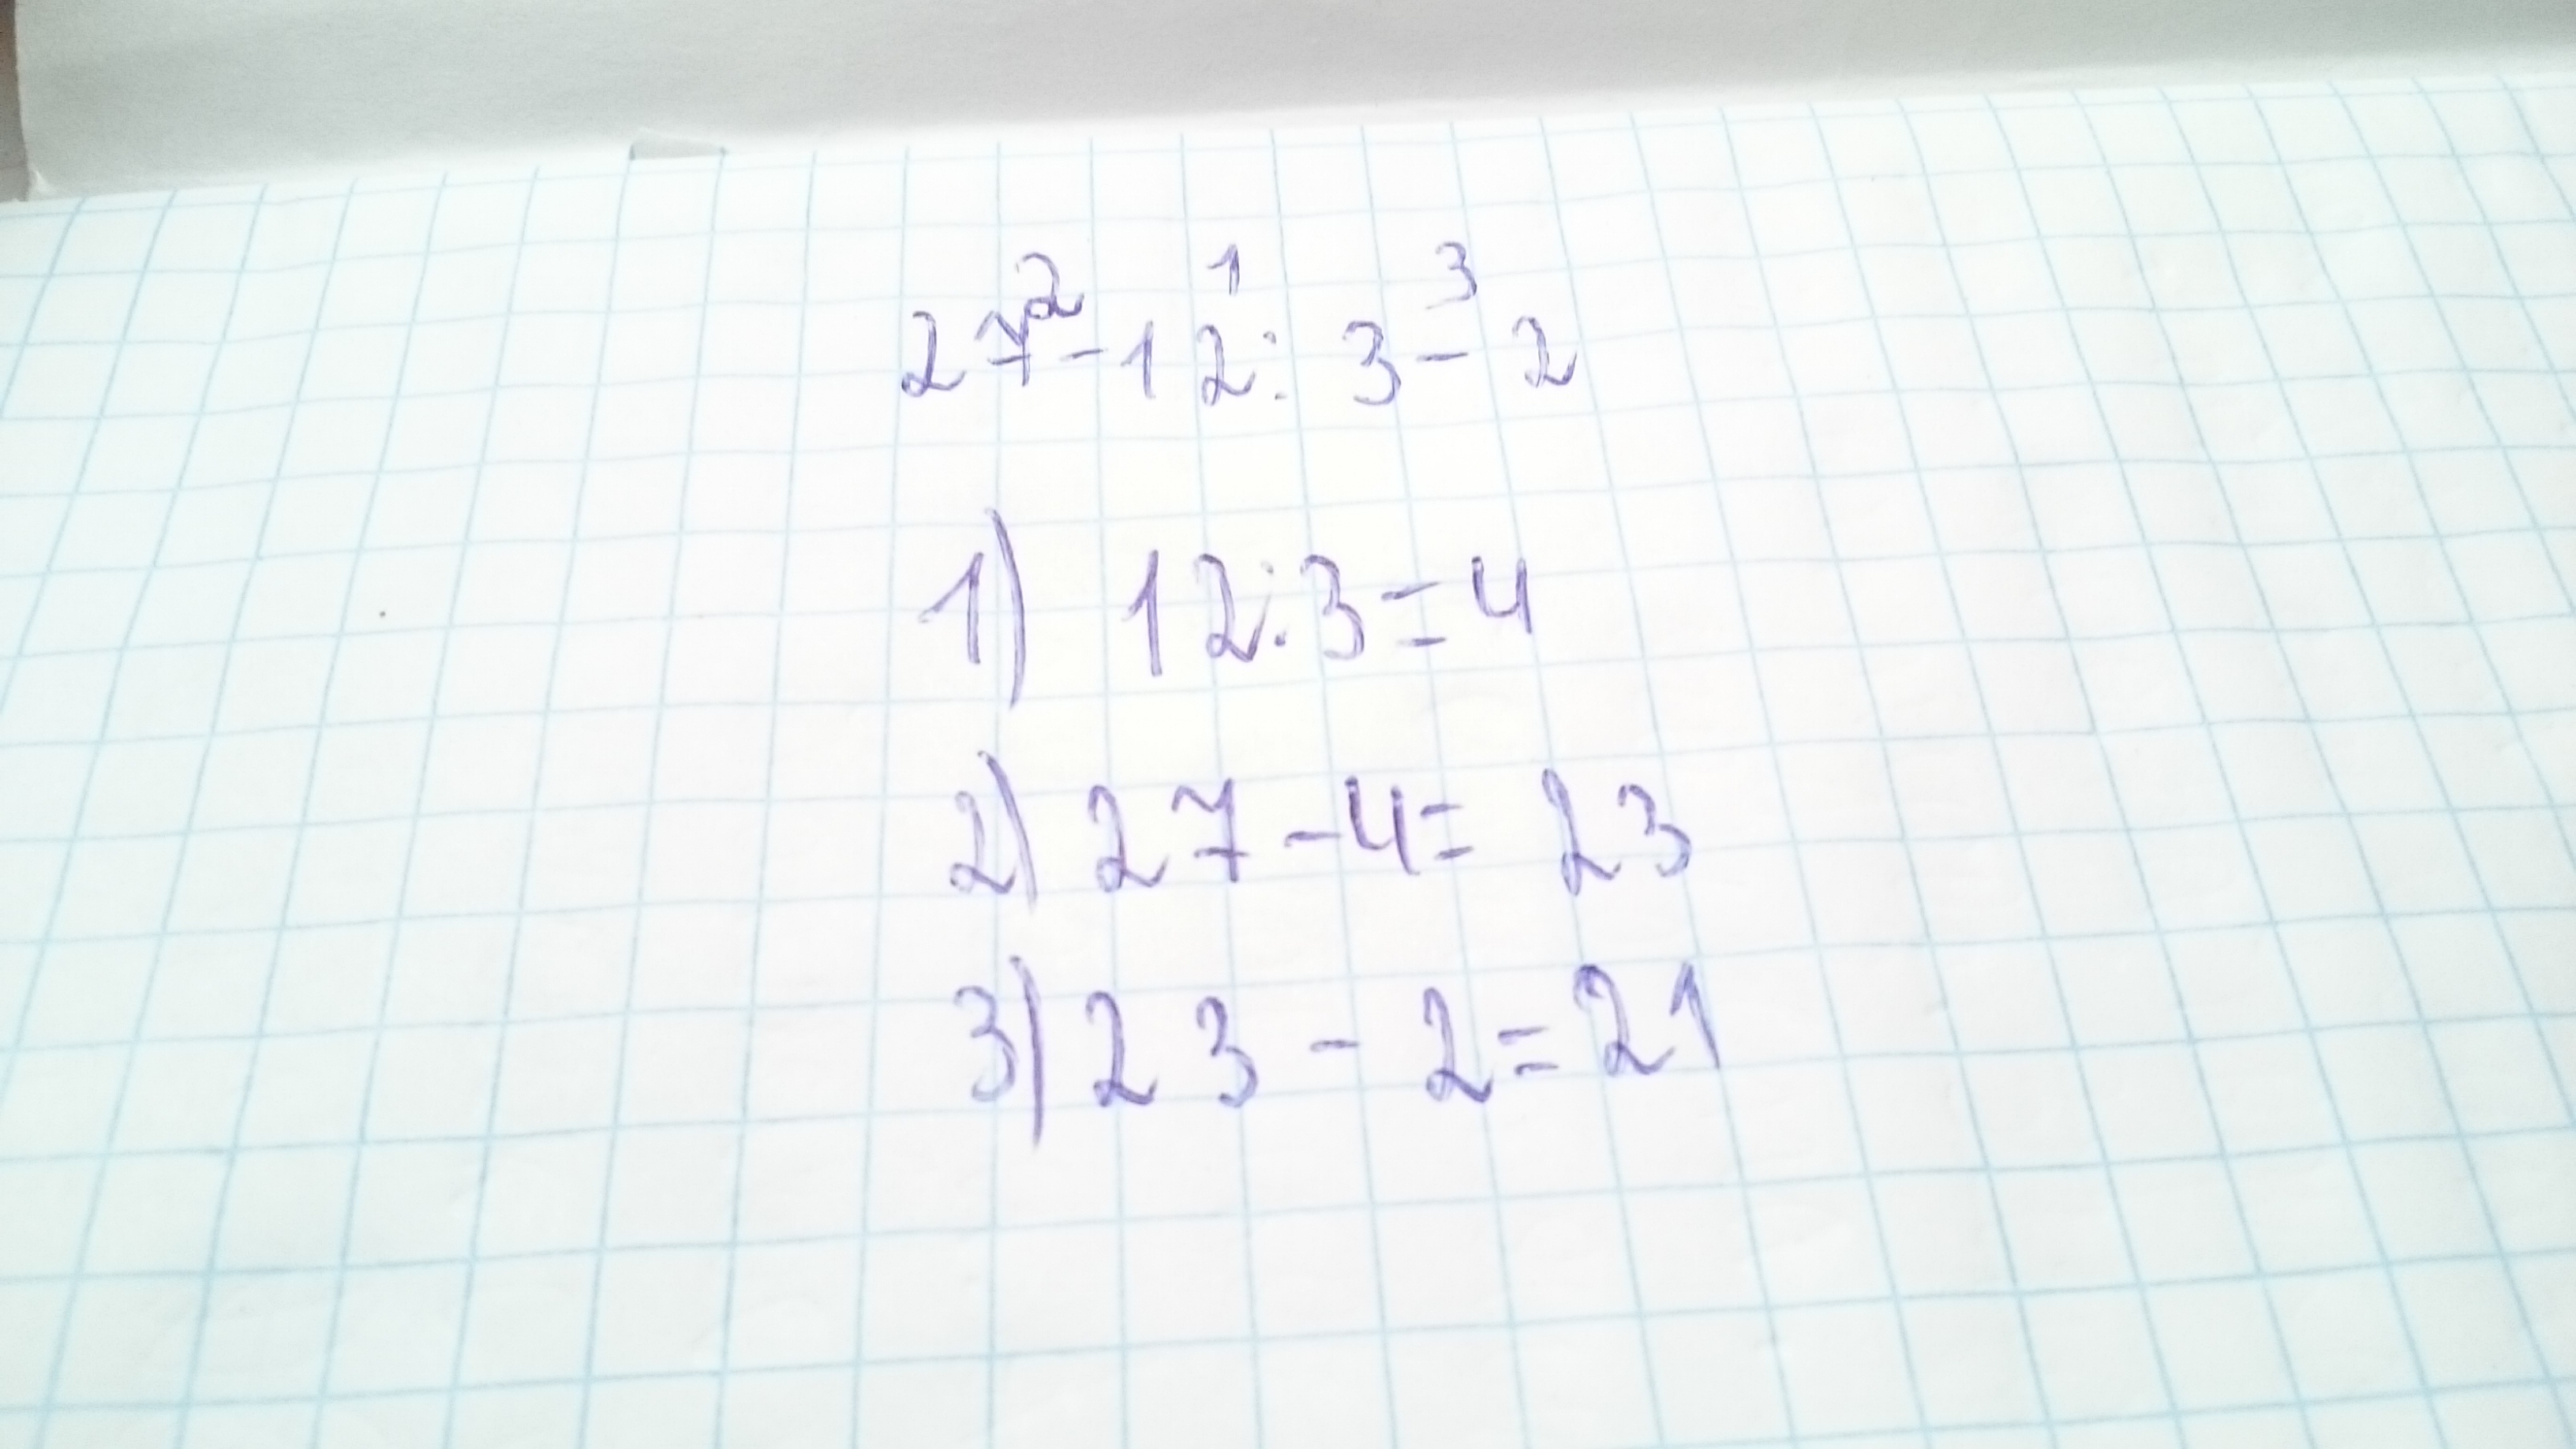 2 1 3
27-12:3-2
1) 12:3=4
2) 27-4=23
3) 23-2=21